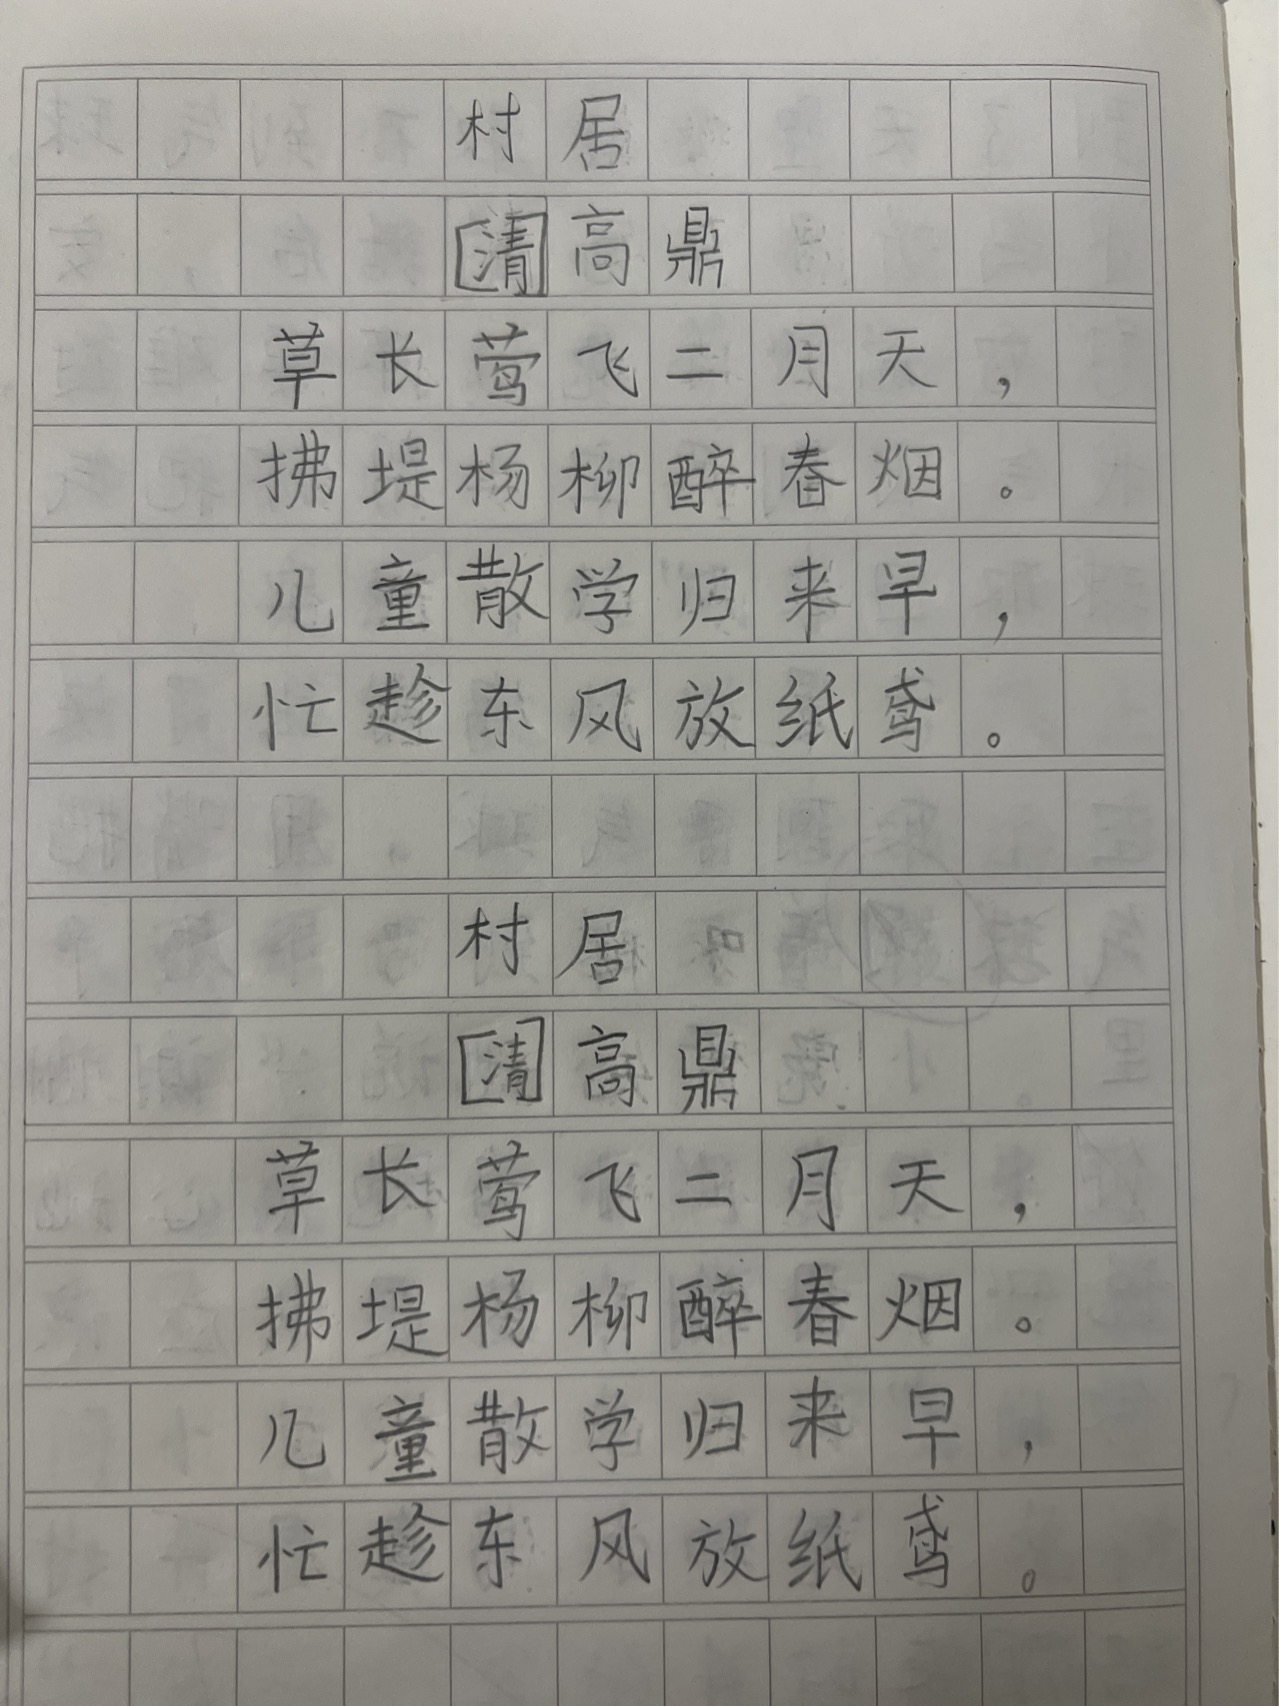 村居
[清]高鼎
草长莺飞二月天，
拂堤杨柳醉春烟。
儿童散学归来早，
忙趁东风放纸鸢。
村居
[清]高鼎
草长莺飞二月天，
拂堤杨柳醉春烟。
儿童散学归来早，
忙趁东风放纸鸢。